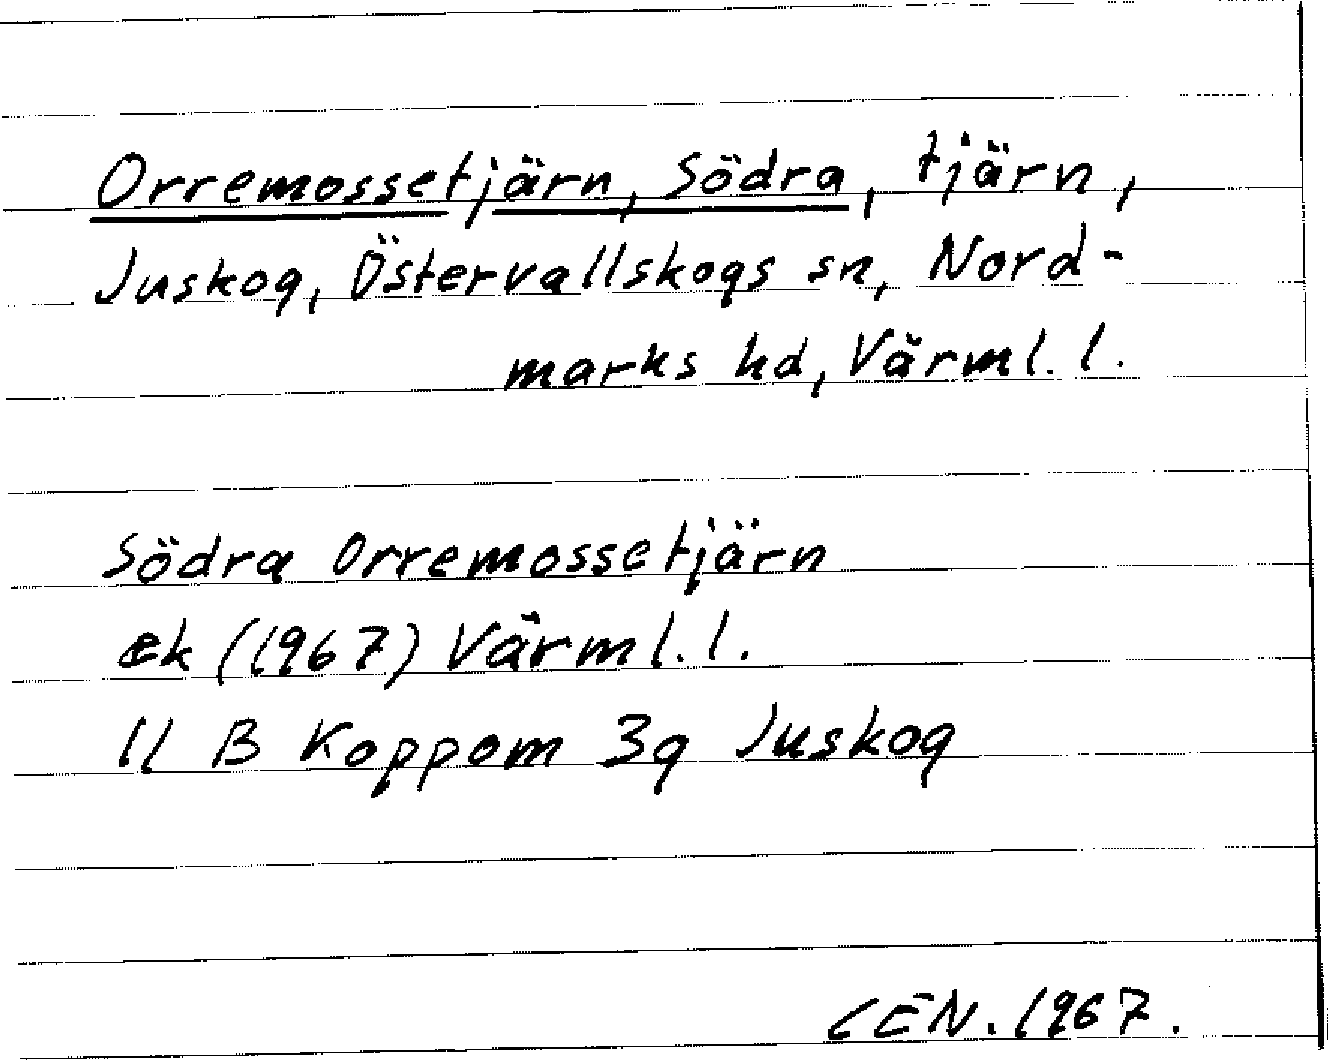 Orremossetjärn, Södra, tjärn,
Juskog, Östervallskogs sn, Nord-
marks hd, Värml. l.
Södra Orremossetjärn
ek (1967) Värml. l.
11 B Koppom 3g Juskog
CEN. 1967.